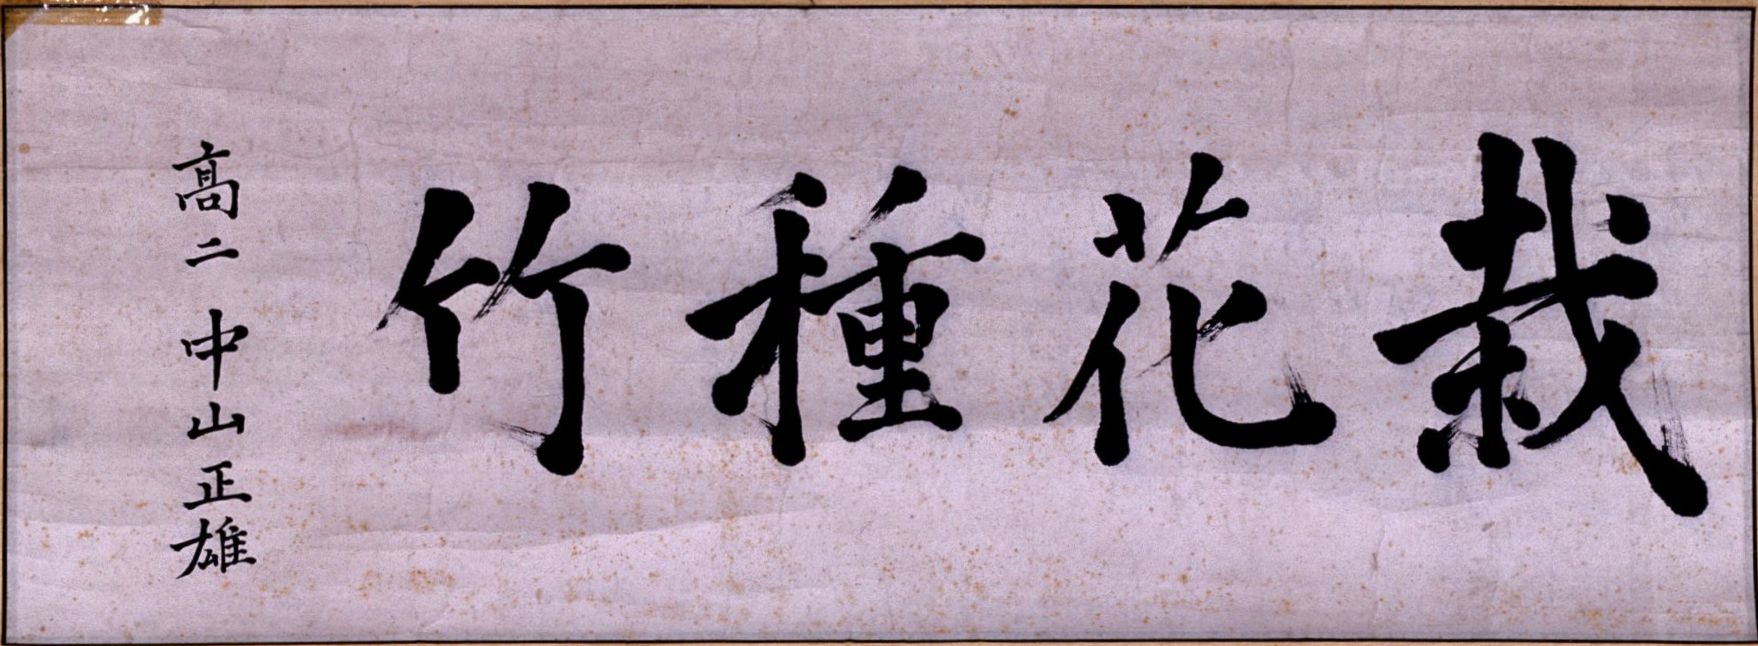 栽花種竹
高二 中山正雄